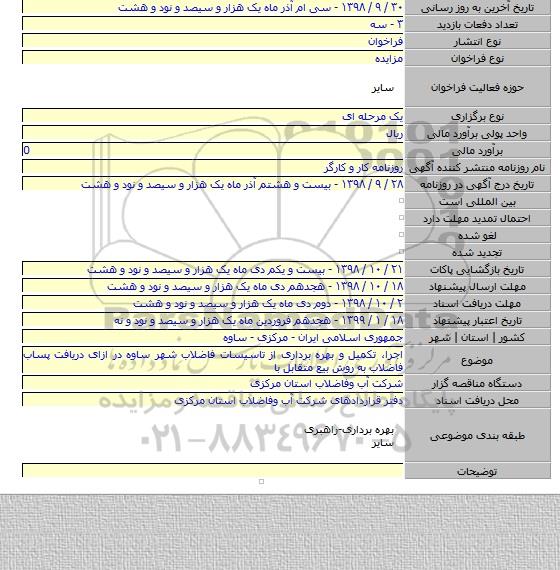 تاریخ آخرین به روز رسانی ۳۰ / ۹ / ۱۳۹۸ - سی ام آذر ماه یک هزار و سیصد و نود و هشت
تعداد دفعات بازدید ۳ - سه
نوع انتشار فراخوان
نوع فراخوان مزایده
حوزه فعالیت فراخوان سایر
نوع برگزاری یک مرحله ای
واحد پولی برآورد مالی ریال
برآورد مالی 0
نام روزنامه منتشر کننده آگهی روزنامه کار و کارگر
تاریخ درج آگهی در روزنامه ۲۸ / ۹ / ۱۳۹۸ - بیست و هشتم آذر ماه یک هزار و سیصد و نود و هشت
بین المللی است
احتمال تمدید مهلت دارد
لغو شده
تجدید شده
تاریخ بازگشایی پاکات ۲۱ / ۱۰ / ۱۳۹۸ - بیست و یکم دی ماه یک هزار و سیصد و نود و هشت
مهلت ارسال پیشنهاد ۱۸ / ۱۰ / ۱۳۹۸ - هجدهم دی ماه یک هزار و سیصد و نود و هشت
مهلت دریافت اسناد ۲ / ۱۰ / ۱۳۹۸ - دوم دی ماه یک هزار و سیصد و نود و هشت
تاریخ اعتبار پیشنهاد ۱۸ / ۱ / ۱۳۹۹ - هجدهم فروردین ماه یک هزار و سیصد و نود و نه
کشور | استان | شهر جمهوری اسلامی ایران - مرکزی - ساوه
موضوع اجرا، تکمیل و بهره برداری از تاسیسات فاضلاب شهر ساوه در ازای دریافت پساب
فاضلاب به روش بیع متقابل با
دستگاه مناقصه گزار شرکت آب وفاضلاب استان مرکزی
محل دریافت اسناد دفتر قراردادهای شرکت آب وفاضلاب استان مرکزی
طبقه بندی موضوعی بهره برداری-راهبری
سایر
توضیحات
پایگاه اطلاع رسانی مناقصه و مزایده
۰۲۱-۸۸۳۴۹۶۷۰-۵